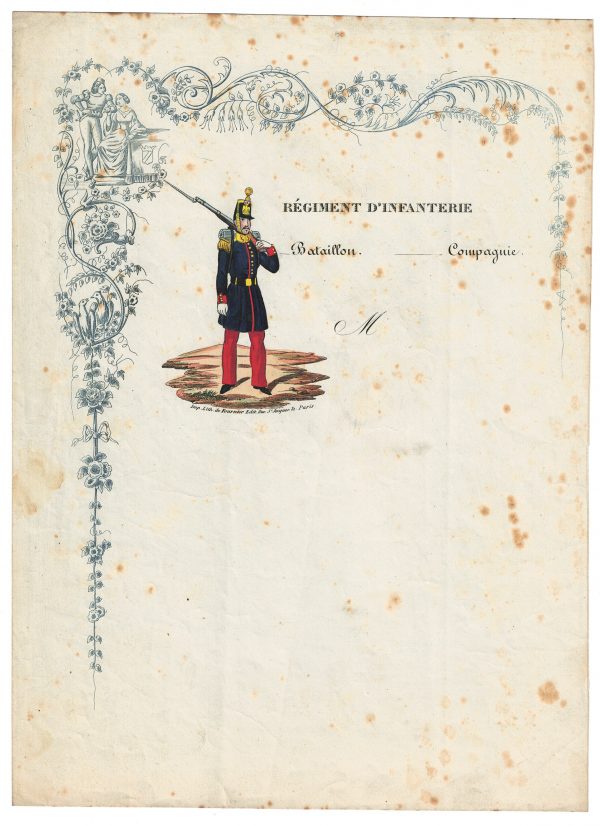 RÉGIMENT D'INFANTERIE
Bataillon. Compagnie.
M
Imp. Lith. de Fournier Edit. Rue St. Jacques Paris